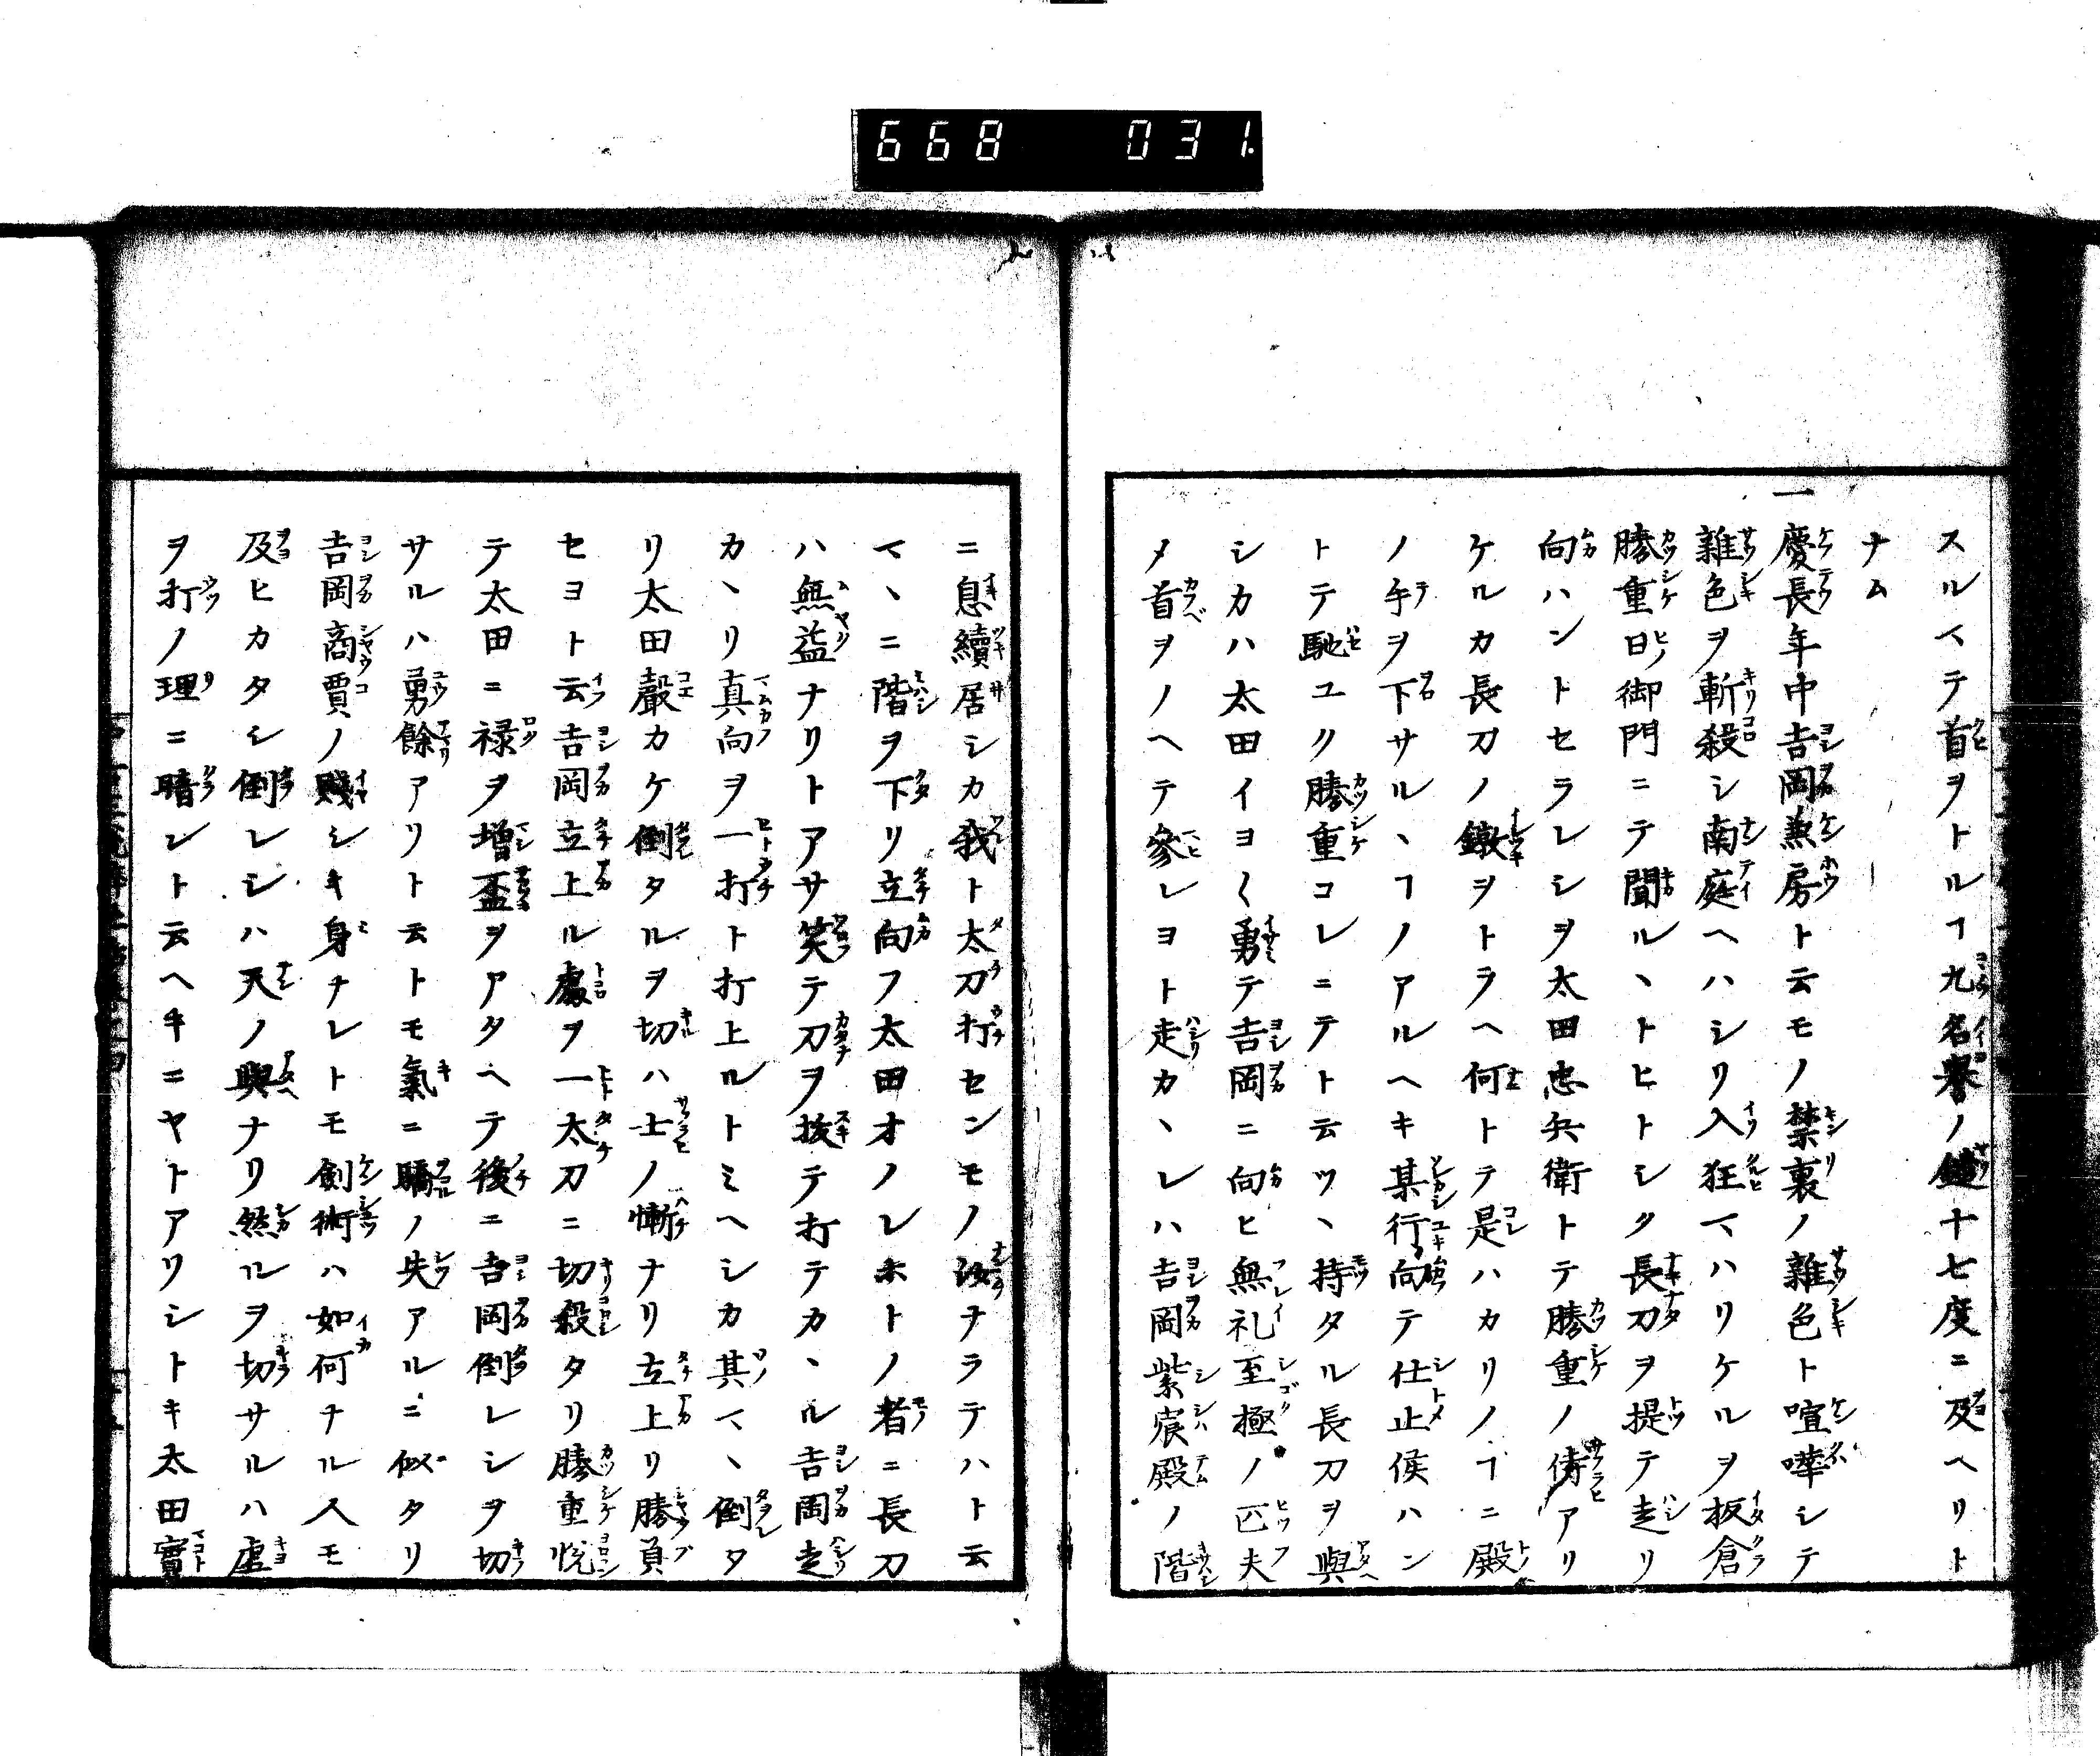 668 031.
スルヘテ首ヲトルヿ九名誉ノ鑓十七度ニ及ヘリト
ナム
一慶長年中吉岡兼房ト云モノ禁裏ノ雜色ト喧嘩シテ
雜色ヲ斬殺シ南庭ヘハシリ入狂マハリケルヲ板倉
勝重日御門ニテ聞ルヽトヒトシク長刀ヲ提テ走リ
向ハントセラレシヲ太田忠兵衛トテ勝重ノ侍アリ
ケルカ長刀ノ鐓ヲトラヘ何トテ是ハカリノヿニ殿
ノ手ヲ下サルヽヿノアルヘキ某行向テ仕止候ハン
トテ馳ユク勝重コレニテト云ツヽ持タル長刀ヲ與
シカハ太田イヨ〱勇テ吉岡ニ向ヒ無礼至極ノ匹夫
メ首ヲノヘテ參レヨト走カヽレハ吉岡紫宸殿ノ階
ニ息續居シカ我ト太刀打センモノ汝ナラテハト云
マヽニ階ヲ下リ立向フ太田オノレホトノ者ニ長刀
ハ無益ナリトアサ笑テ刀ヲ抜テ打テカヽル吉岡走
カヽリ真向ヲ一打ト打上ルトミヘシカ其マヽ倒タ
リ太田聲カケ倒タルヲ切ハ士ノ慚ナリ立上リ勝負
セヨト云吉岡立上ル處ヲ一太刀ニ切殺タリ勝重悦
テ太田ニ禄ヲ増盃ヲアタヘテ後ニ吉岡倒レシヲ切
サルハ勇餘アリト云トモ氣ニ驕ノ失アルニ似タリ
吉岡商賈ノ賤シキ身ナレトモ劍術ハ如何ナル人モ
及ヒカタシ倒レシハ天ノ與ナリ然ルヲ切サルハ虚
ヲ打ノ理ニ暗シト云ヘキニヤトアリシトキ太田實